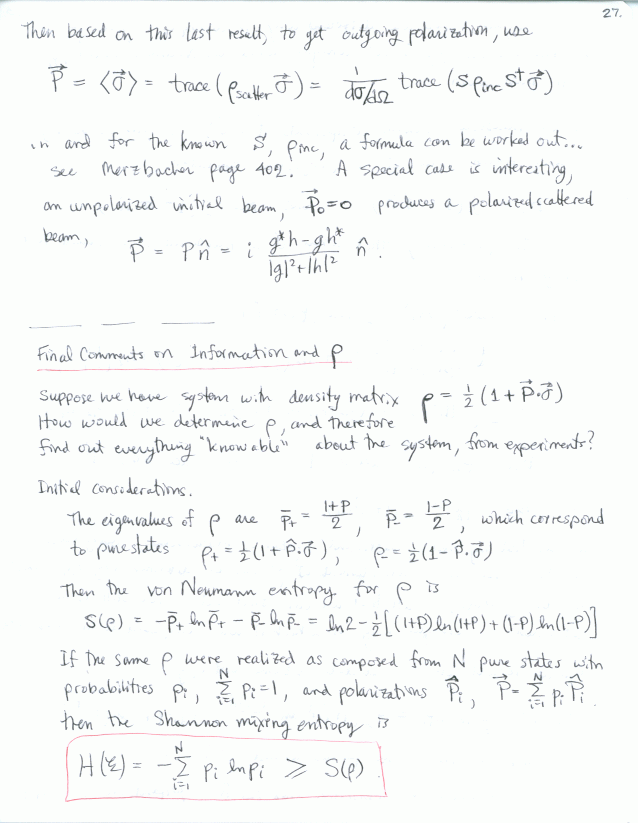 27.
Then based on this last result, to get outgoing polarization, use
P⃗ = ⟨σ⃗⟩ = trace (ρ_scatter σ⃗) = 1/(dσ/dΩ) trace (S ρ_inc S† σ⃗)
in and for the known S, ρ_inc, a formula can be worked out...
see Merzbacher page 402. A special case is interesting,
an unpolarized initial beam, P⃗₀=0 produces a polarized scattered
beam, P⃗ = P n̂ = i (g*h - gh*)/(|g|²+|h|²) n̂ .
Final Comments on Information and ρ
Suppose we have system with density matrix ρ = ½ (1 + P⃗·σ⃗)
How would we determine ρ, and therefore
find out everything "knowable" about the system, from experiments?
Initial considerations.
The eigenvalues of ρ are p̄₊ = (1+P)/2 , p̄₋ = (1-P)/2 , which correspond
to pure states ρ₊ = ½(1 + P̂·σ⃗) , ρ₋ = ½(1 - P̂·σ⃗)
Then the von Neumann entropy for ρ is
S(ρ) = -p̄₊ ln p̄₊ - p̄₋ ln p̄₋ = ln2 - ½[(1+P)ln(1+P) + (1-P)ln(1-P)]
If the same ρ were realized as composed from N pure states with
probabilities pᵢ , Σ_{i=1}^N pᵢ = 1 , and polarizations P̂ᵢ , P⃗ = Σ_{i=1}^N pᵢ P̂ᵢ
then the Shannon mixing entropy is
H(ξ) = - Σ_{i=1}^N pᵢ ln pᵢ ⩾ S(ρ)